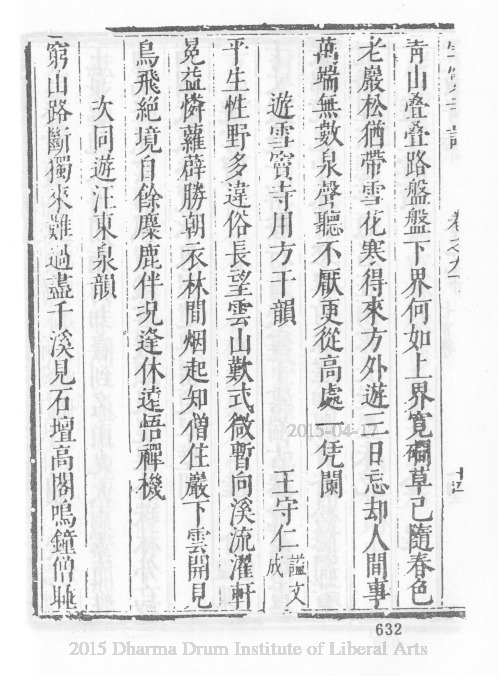 青山疊疊路盤盤下界何如上界寬磵草已隨春色
老巖松猶帶雪花寒得來方外遊三日忘却人間事
萬端無數泉聲聽不厭更從高處一凭闌
遊雪竇寺用方干韻
王守仁諡文成
平生性野多違俗長望雲山歎式微暫向溪流濯軒
冕益憐蘿薜勝朝衣林間烟起知僧住巖下雲開見
鳥飛絕境自餘麋鹿伴况逢休遠悟禪機
次同遊汪東泉韻
窮山路斷獨來難過盡千溪見石壇高閣鳴鐘僧睡
2015-04-17
632
2015 Dharma Drum Institute of Liberal Arts